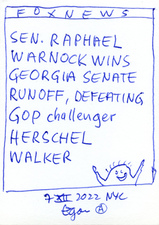 FOXNEWS
SEN. RAPHAEL
WARNOCK WINS
GEORGIA SENATE
RUNOFF, DEFEATING
GOP challenger
HERSCHEL
WALKER
7 XII 2022 NYC